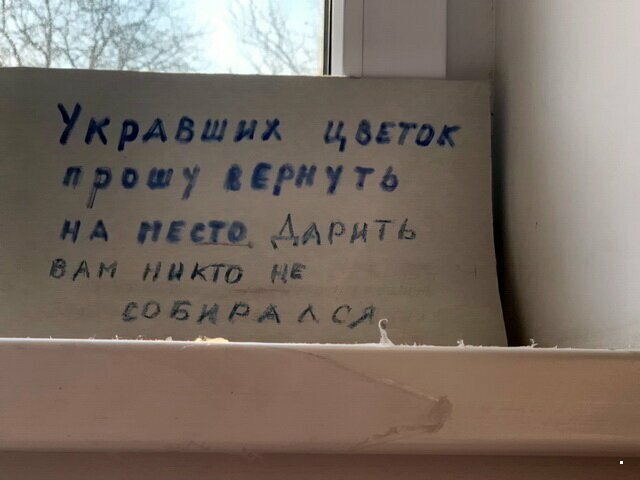 Укравших цветок
прошу вернуть
на место Дарить
вам никто не
собирался